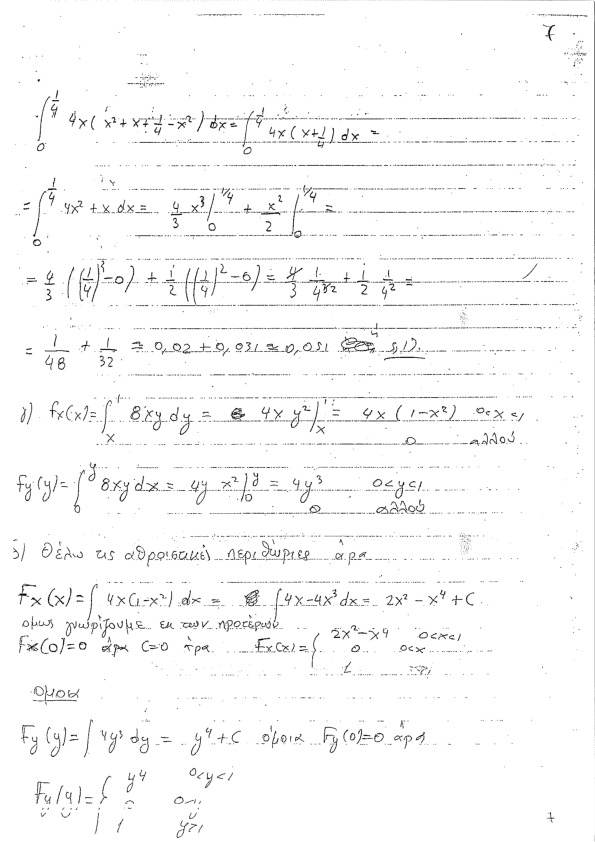 7
∫_0^{1/4} 4x(x²+x+1/4-x²) dx = ∫_0^{1/4} 4x(x+1/4) dx =
= ∫_0^{1/4} 4x²+x dx = 4/3 x³|_0^{1/4} + x²/2 |_0^{1/4} =
= 4/3 ((1/4)³-0) + 1/2 ((1/4)²-0) = 4/3 1/4³ + 1/2 1/4² =
= 1/48 + 1/32 = 0,02+0,031 = 0,051
γ) fx(x)= ∫_x^1 8xy dy = 4x y²|_x^1 = 4x(1-x²) 0<x<1
0 αλλού
Fy(y)= ∫_0^y 8xy dx = 4y x²|_0^y = 4y³ 0<y<1
0 αλλού
δ) Θέλω τις αθροιστικές περιθώριες άρα
Fx(x)= ∫ 4x(1-x²) dx = ∫4x-4x³dx = 2x²-x⁴+C
ομως γνωρίζουμε εκ των προτέρων
Fx(0)=0 άρα C=0 άρα Fx(x)= { 2x²-x⁴ 0<x<1
0 0<x
1
Ομοια
Fy(y)= ∫ 4y³ dy = y⁴+C όμοια Fy(0)=0 άρα
Fy(y)= { y⁴ 0<y<1
0
1 y>1
7